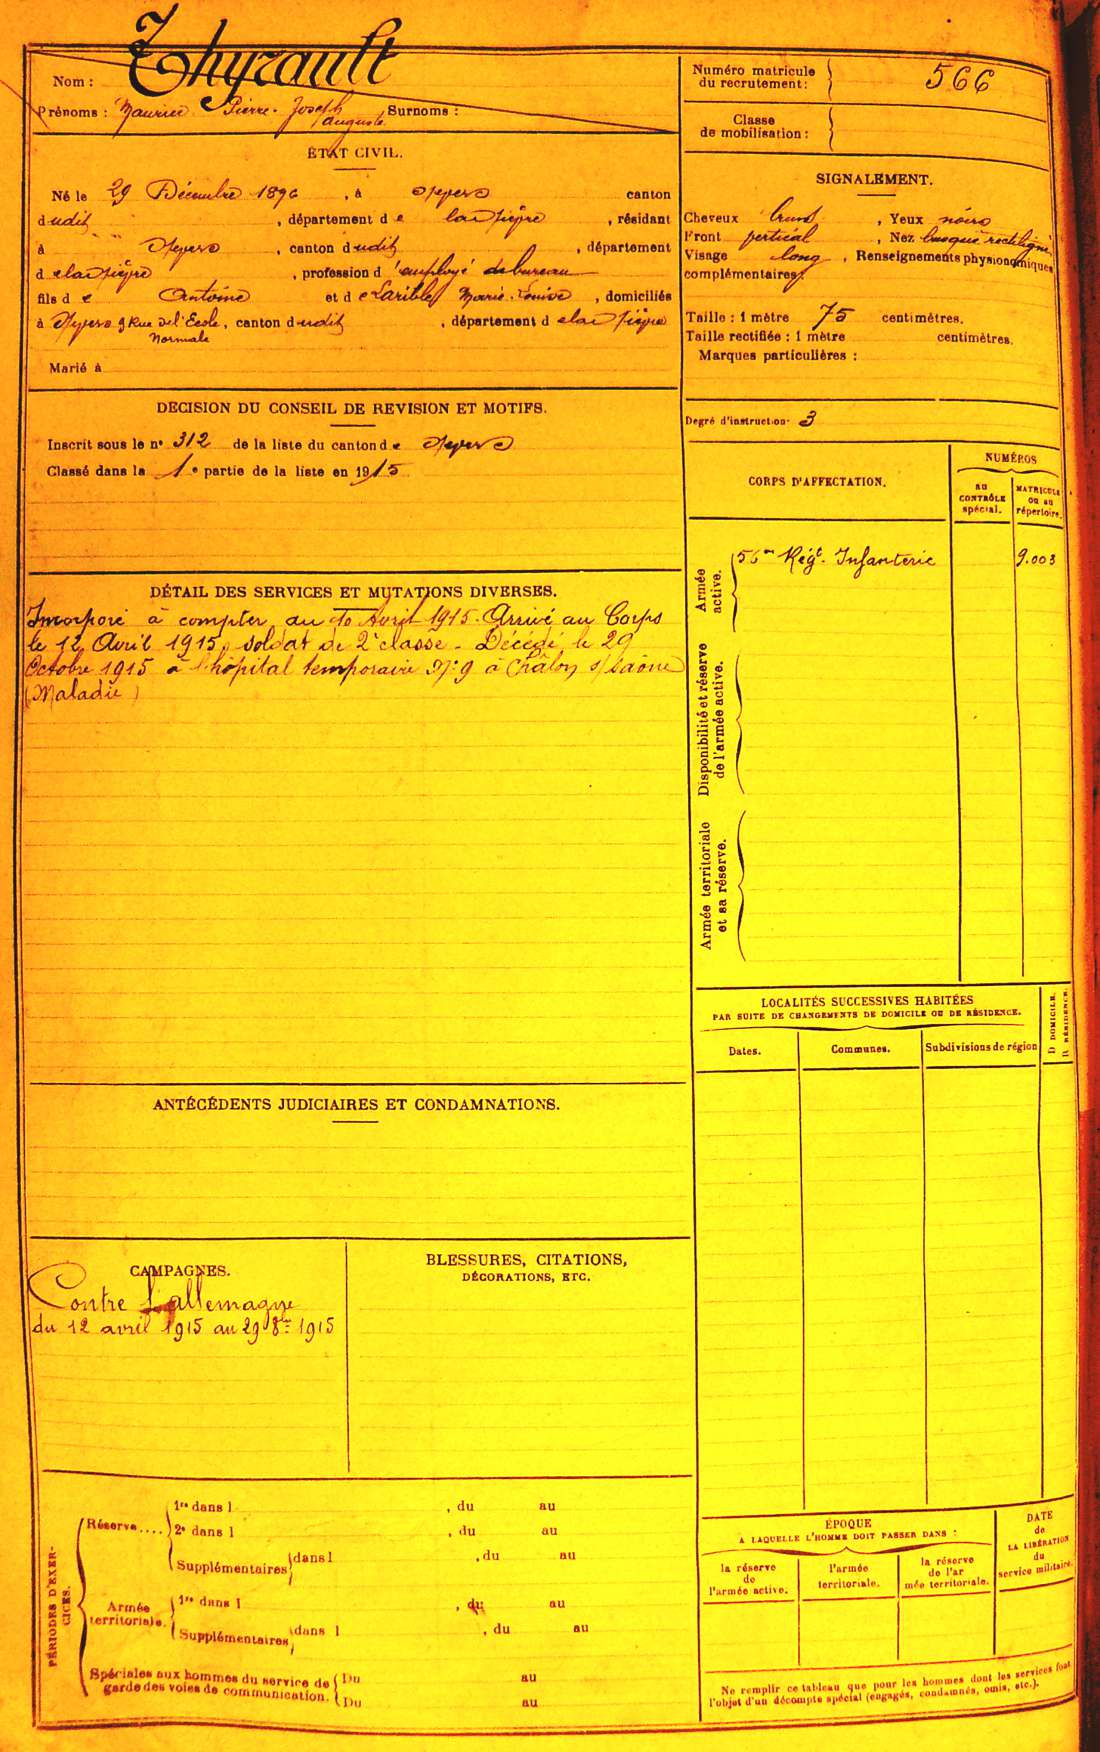 Thyrault
Nom :
Prénoms : Maurice Pierre Joseph Surnoms :
Auguste
Numéro matricule
du recrutement :
566
Classe
de mobilisation :
ÉTAT CIVIL.
Né le 29 Décembre 1896, à Nevers canton
dudit, département de la Nièvre, résidant
à Nevers, canton dudit, département
de la Nièvre, profession d'employé de bureau
fils de Antoine et de Larible Marie-Louise, domiciliés
à Nevers 9 Rue de l'École, canton dudit, département de la Nièvre
Normale
Marié à
SIGNALEMENT.
Cheveux bruns, Yeux noirs
Front vertical, Nez busqué rectiligne
Visage long, Renseignements physionomiques
complémentaires :
Taille : 1 mètre 75 centimètres.
Taille rectifiée : 1 mètre centimètres.
Marques particulières :
Degré d'instruction 3
DECISION DU CONSEIL DE REVISION ET MOTIFS.
Inscrit sous le n° 312 de la liste du canton de Nevers
Classé dans la 1e partie de la liste en 1915
CORPS D'AFFECTATION.
NUMÉROS
AU
CONTRÔLE
spécial.
MATRICULE
OU AU
répertoire.
Armée
active.
56me Régt. Infanterie 9.003
Disponibilité et réserve
de l'armée active.
Armée territoriale
et sa réserve.
DÉTAIL DES SERVICES ET MUTATIONS DIVERSES.
Incorporé à compter du 10 Avril 1915. Arrivé au Corps
le 12 Avril 1915, soldat de 2e classe. Décédé le 29
Octobre 1915 à l'hôpital temporaire N° 9 à Châlon s/ Saône
(Maladie)
LOCALITÉS SUCCESSIVES HABITÉES
PAR SUITE DE CHANGEMENTS DE DOMICILE OU DE RÉSIDENCE.
Dates.
Communes.
Subdivisions de région
D DOMICILE.
R RÉSIDENCE.
ANTÉCÉDENTS JUDICIAIRES ET CONDAMNATIONS.
CAMPAGNES.
Contre l'allemagne
du 12 avril 1915 au 29 8bre 1915
BLESSURES, CITATIONS,
DÉCORATIONS, ETC.
PÉRIODES D'EXER-
CICES.
Réserve....
1re dans l , du au
2e dans l , du au
Supplémentaires dans l , du au
Armée
territoriale.
1re dans l , du au
Supplémentaires dans l , du au
Spéciales aux hommes du service de
garde des voies de communication.
Du au
Du au
ÉPOQUE
A LAQUELLE L'HOMME DOIT PASSER DANS :
la réserve
de
l'armée active.
l'armée
territoriale.
la réserve
de l'ar
mée territoriale.
DATE
de
LA LIBÉRATION
du
service militaire.
Ne remplir ce tableau que pour les hommes dont les services font
l'objet d'un décompte spécial (engagés, condamnés, omis, etc.).